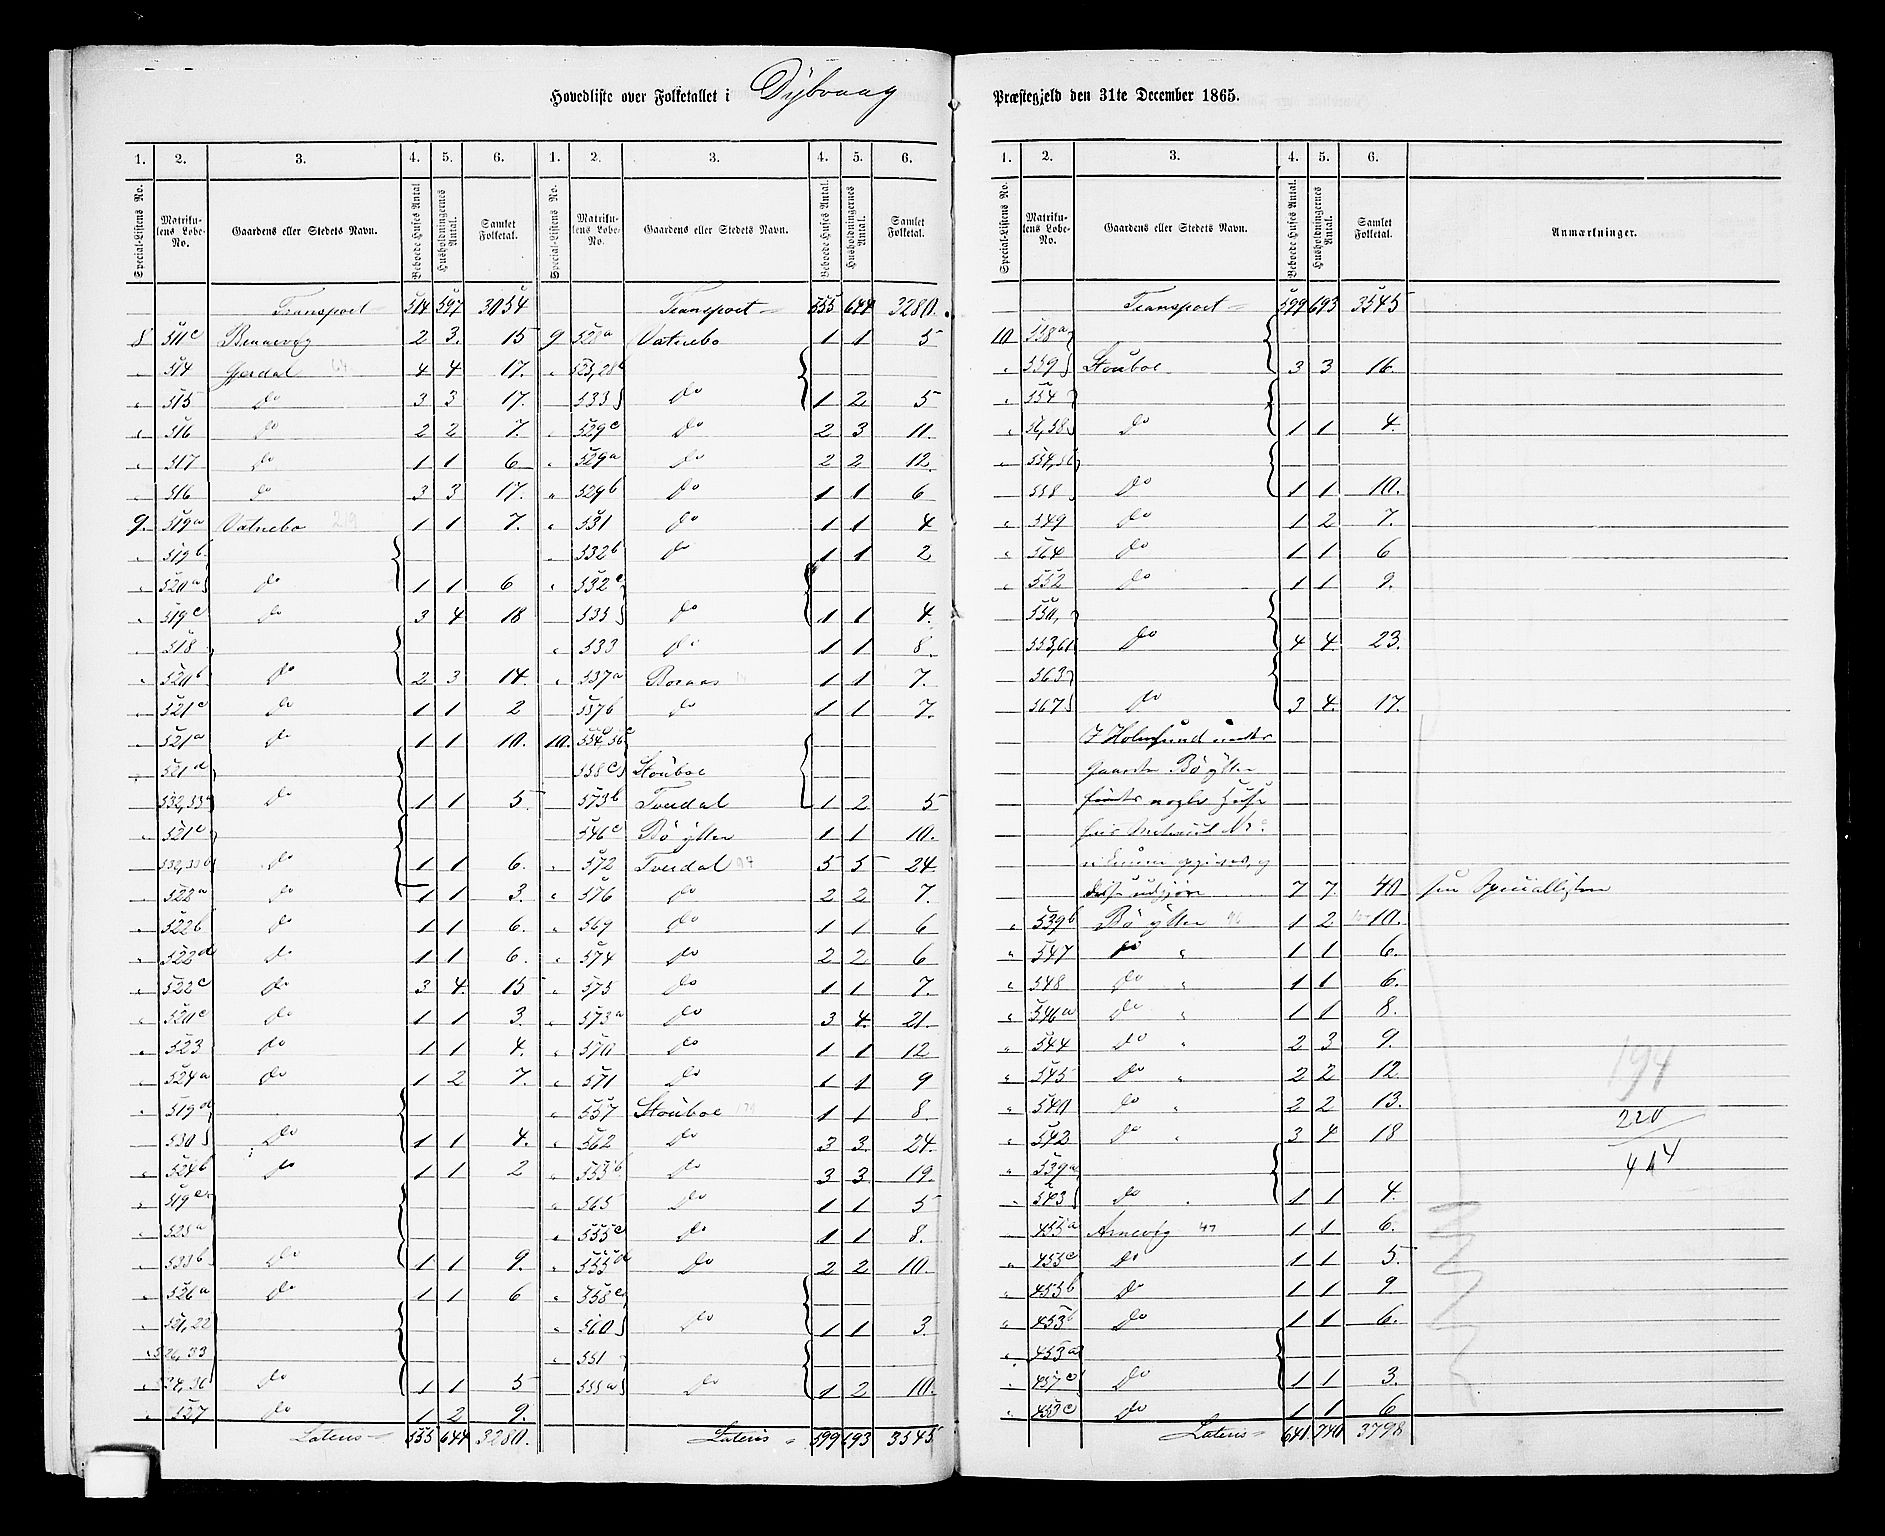 Hovedliste over Folketallet i Dybvaag
1. 2. 3. 4. 5. 6. 1. 2. 3. 4. 5. 6.
Special-Listens No. Matrikulens Løbe-No. Gaardens eller Stedets Navn. Beboede Huses Antal Husholdningernes Antal. Samlet Folketal. Special-Listens No. Matrikulens Løbe-No. Gaardens eller Stedets Navn. Beboede Huses Antal. Husholdningernes Antal. Samlet Folketal.
Transport 514 597 3054
8 511c Bennevig 2 3. 15
" 514 Gjerdal 64 4 4 17.
" 515 do 3 3 17.
" 516 do 2 2 7.
" 517 do 1 1 6
516 do 3 3 17.
9. 519a Vatnebo 219 1 1 7.
" 519b
" 520a do 1 1 6
" 519c do 3 4 18
" 518
" 520b do 2 3 14.
" 521c do 1 1 2
" 521a do 1 1 10.
" 521d
532,33 do 1 1 5
" 521c
532,33b do 1 1 6.
" 522a do 1 1 3.
" 522b do 1 1 6.
" 522d do 1 1 6.
" 522c do 3 4. 15
" 520c do 1 1 3.
" 523 do 1 1 4.
" 524a do 1 2 7.
" 519d
530 do 1 1 4.
" 524b do 1 1 2
" 519e
" 525a
533b do 1 1 9.
" 526a do 1 1 6
" 521,22
526,33
534,36 do 1 1 5
" 527 do 1 2 9.
Lateris 555 644 3280.
Transport 555 644 3280.
9 528a Vatnebo 1 1 5
" 525,28b
533 do 1 2 5
" 529c do 2 3 11.
" 529a do 2 2 12.
" 529b do 1 1 6
" 531 do 1 1 4
532b do 1 1 2
" 532c
535 do 1 1 4.
" 533 do 1 1 8.
" 537a Boraas 1 1 7.
537b do 1 1 7.
10. 554,56c
558c Stouboe
573b Tverdal 1 2 5
546c Bö ytter 1 1 10.
" 572 Tverdal 97 5 5 24
" 576 do 2 2 7.
" 569 do 1 1 6
" 574 do 2 2 6
" 575 do 1 1 7.
" 573a do 3 4. 21.
" 570 do 1 1 12
" 571 do 1 1 9
" 557 Stouboe 179 1 1 8.
" 562 do 3 3. 24.
" 555b do 3 3 19.
" 565 do 1 1 5
" 555c do 1 1 8.
" 555d do 2 2 10.
" 558c
" 560 do 1 1 3.
" 551
555a do 1 2 10.
Lateris 599 693 3545
Præstegjeld den 31te December 1865.
1. 2. 3. 4. 5. 6.
Special-Listens No. Matrikulens Løbe-No. Gaardens eller Stedets Navn. Beboede Huses Antal. Husholdningernes Antal. Samlet Folketal. Anmærkninger.
Transport 599 693 3545
10 558a
" 559 Stouboe 3 3 16.
" 554
" 56,58 do 1 1 4.
" 554,56
558 do 1 1 10.
" 549 do 1 2 7.
" 564 do 1 1 6
" 552 do 1 1 9.
" 550,
553,61 do 4 4. 23.
563
567 do 3 4. 17.
I Holmsund under
Gaarden Bö ytter
findes nogle Huse
hvis Matricul No
udgjör 7 7. 40 see Speciallisten
" 539b Bö ytter 96 1 2 10.
" 547 do " 1 1 6.
" 548 do " 1 1 6.
" 546a do " 1 1 8.
" 544 do " 2 3 9.
" 545 do " 2 2 12.
" 540 do " 2 2 13.
" 542 do " 3 4 18
" 539a
543 do " 1 1 4.
" 455a Arnevig 47 1 1 6.
" 455c do 1 1 5.
" 455b do 1 1 9
" 453b do 1 1 6.
" 453a
457c do 1 1 3.
" 453c do 1 1 6
Lateris 641 740 3798
194
220
414